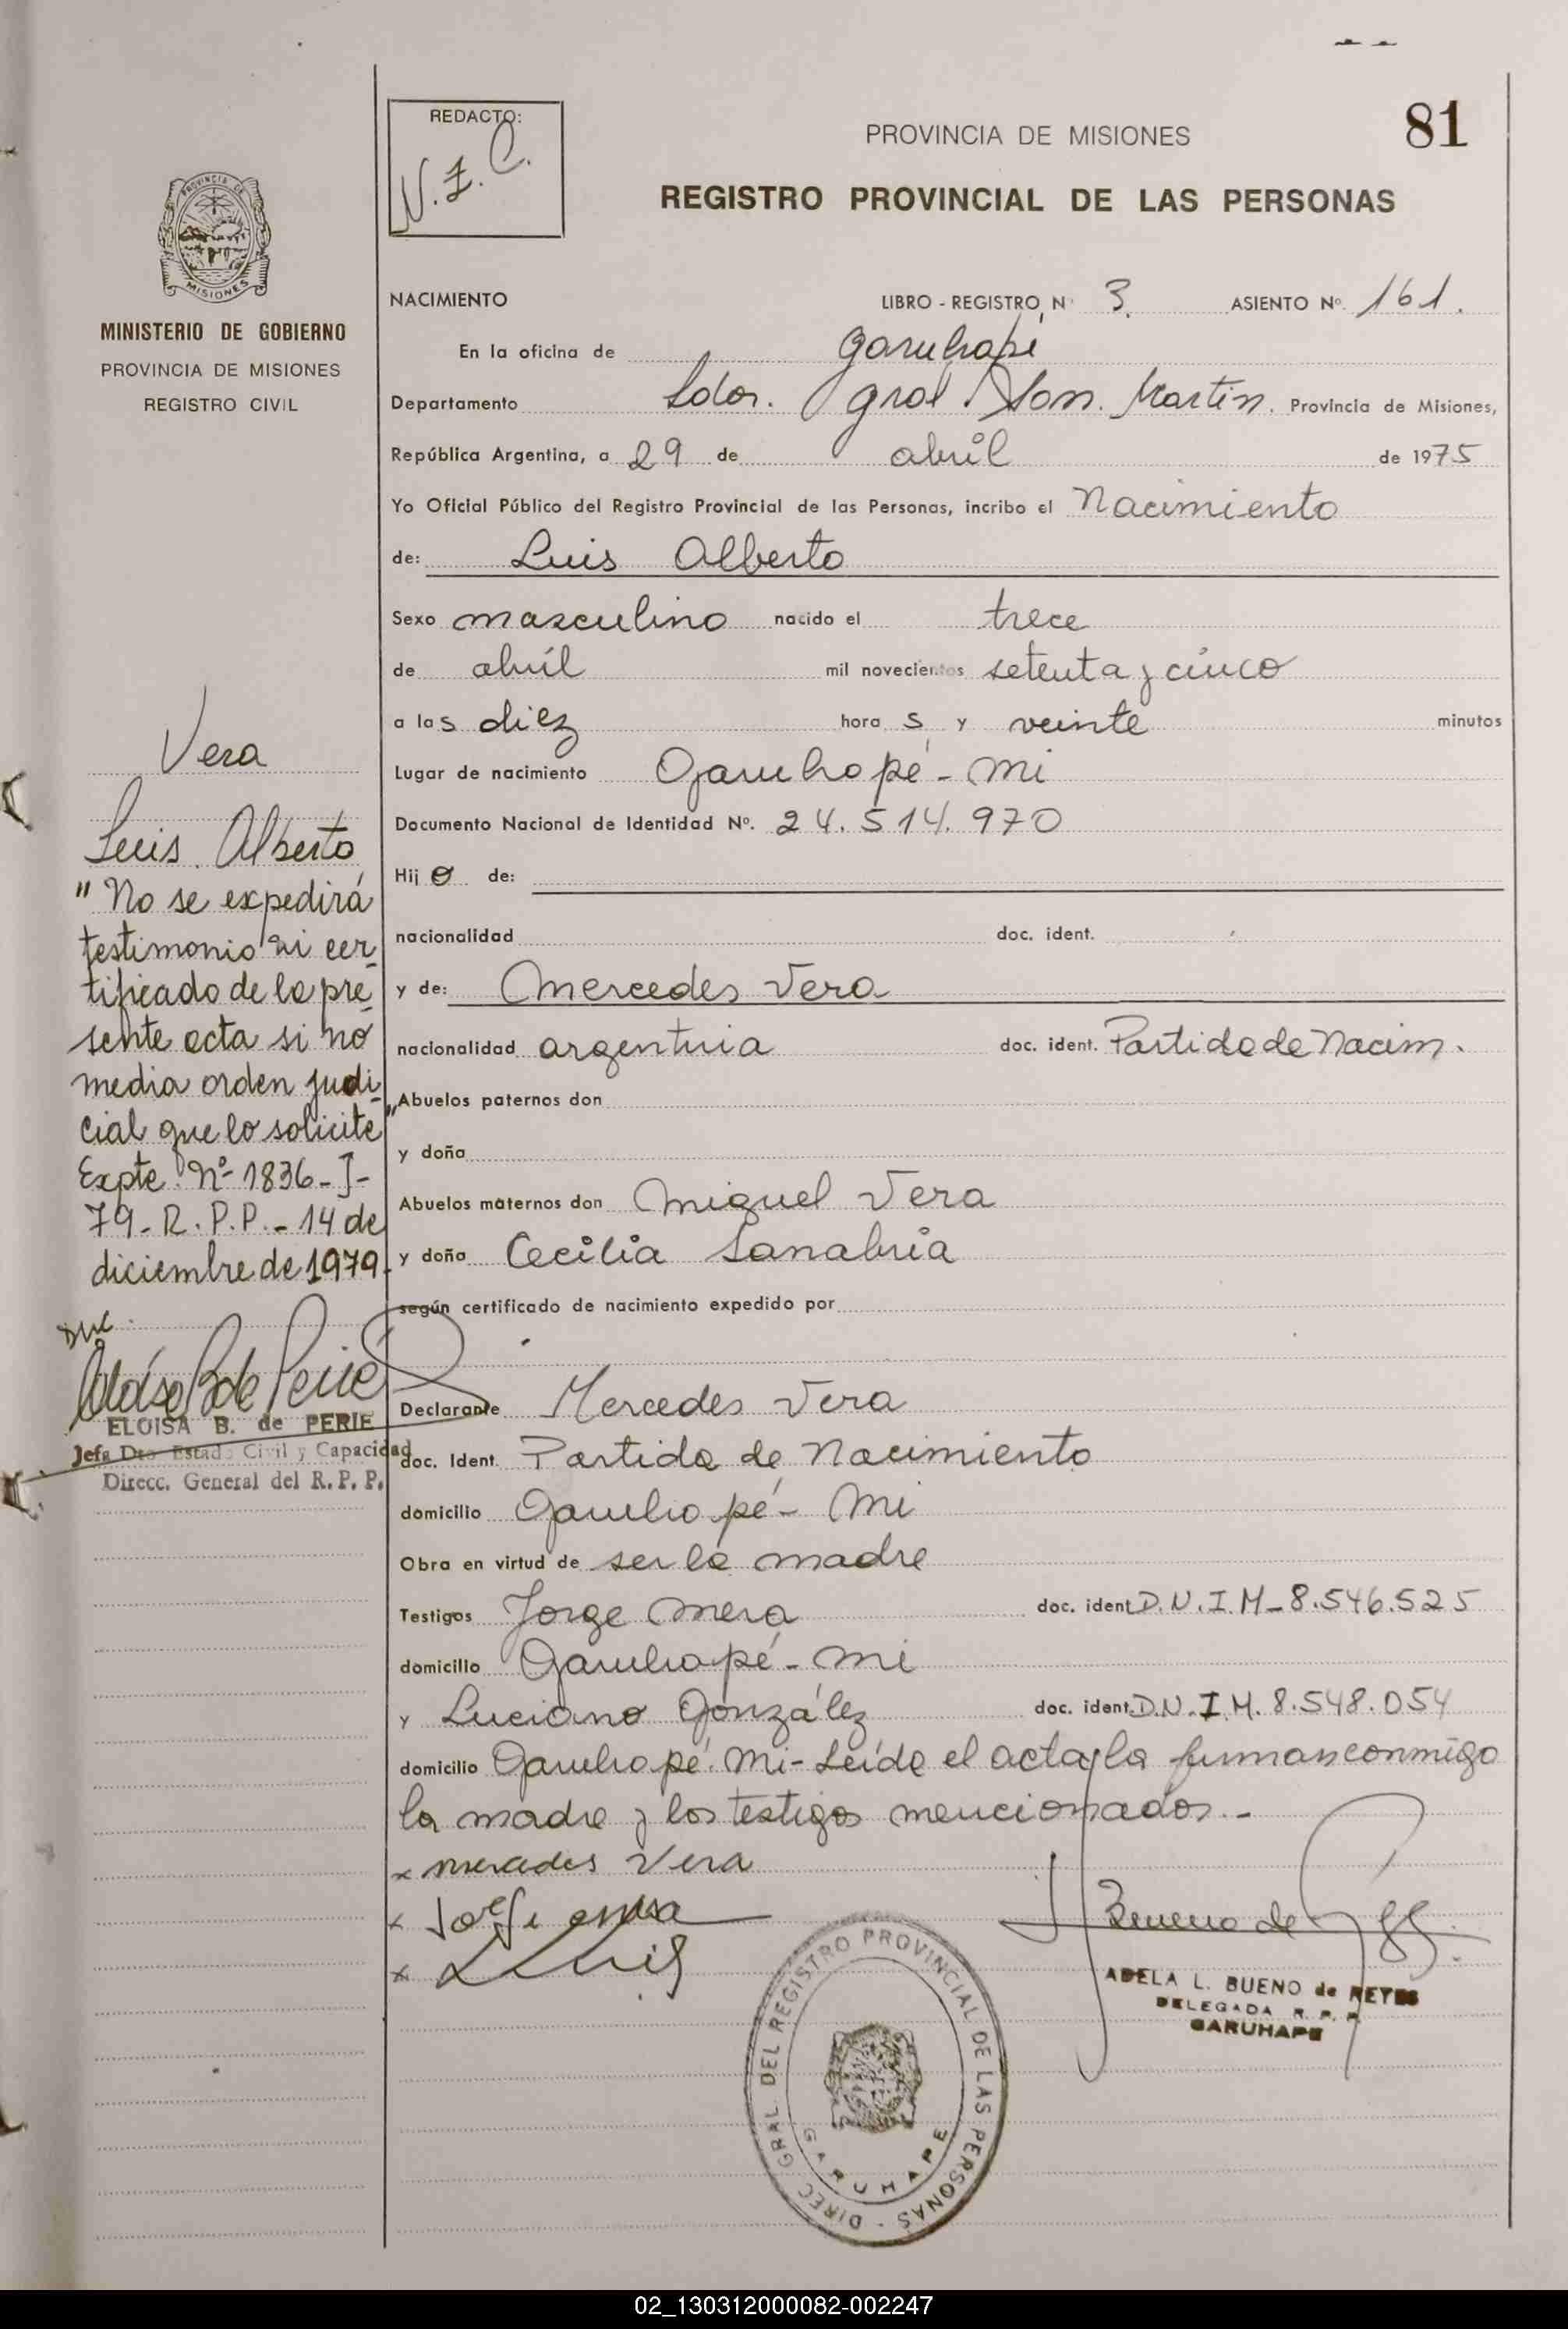 81
REDACTO:
PROVINCIA DE MISIONES
REGISTRO PROVINCIAL DE LAS PERSONAS
MINISTERIO DE GOBIERNO
PROVINCIA DE MISIONES
REGISTRO CIVIL
NACIMIENTO LIBRO - REGISTRO Nº 3 ASIENTO Nº 161.
En la oficina de Garuhapé
Departamento Ldor. Gral. San Martín. Provincia de Misiones,
República Argentina, a 29 de abril de 1975
Yo Oficial Público del Registro Provincial de las Personas, incribo el Nacimiento
de: Luis Alberto
Sexo masculino nacido el trece
de abril mil novecientos setenta y cinco
a las diez hora s y veinte minutos
Lugar de nacimiento Garuhapé - Mi
Documento Nacional de Identidad Nº. 24.514.970
Hij o de:
nacionalidad doc. ident.
y de: Mercedes Vera
nacionalidad argentina doc. ident. Partida de Nacim.
Abuelos paternos don
y doña
Abuelos maternos don Miguel Vera
y doña Cecilia Sanabria
según certificado de nacimiento expedido por
Declarante Mercedes Vera
doc. Ident. Partida de Nacimiento
domicilio Garuhapé - Mi
Obra en virtud de ser la madre
Testigos Jorge Mera doc. ident. D.N.I.M-8.546.525
domicilio Garuhapé - Mi
y Luciano González doc. ident. D.N.I.M. 8.548.054
domicilio Garuhapé. Mi - Leída el acta y la firman conmigo
la madre y los testigos mencionados. -
x mercedes Vera
x Jorge
x Luis
ADELA L. BUENO de REYES
DELEGADA R. P. P.
GARUHAPE
DIREC. GRAL. DEL REGISTRO PROVINCIAL DE LAS PERSONAS -
GARUHAPE
Vera
Luis Alberto
"No se expedirá
testimonio ni cer
tificado de la pre
sente acta si no
media orden judi
cial que lo solicite"
Expte. Nº 1836 - J -
79 - R.P.P. - 14 de
diciembre de 1979.
ELOISA B. de PERIE
Jefa Dto Estado Civil y Capacidad
Direcc. General del R. P. P.
02_130312000082-002247